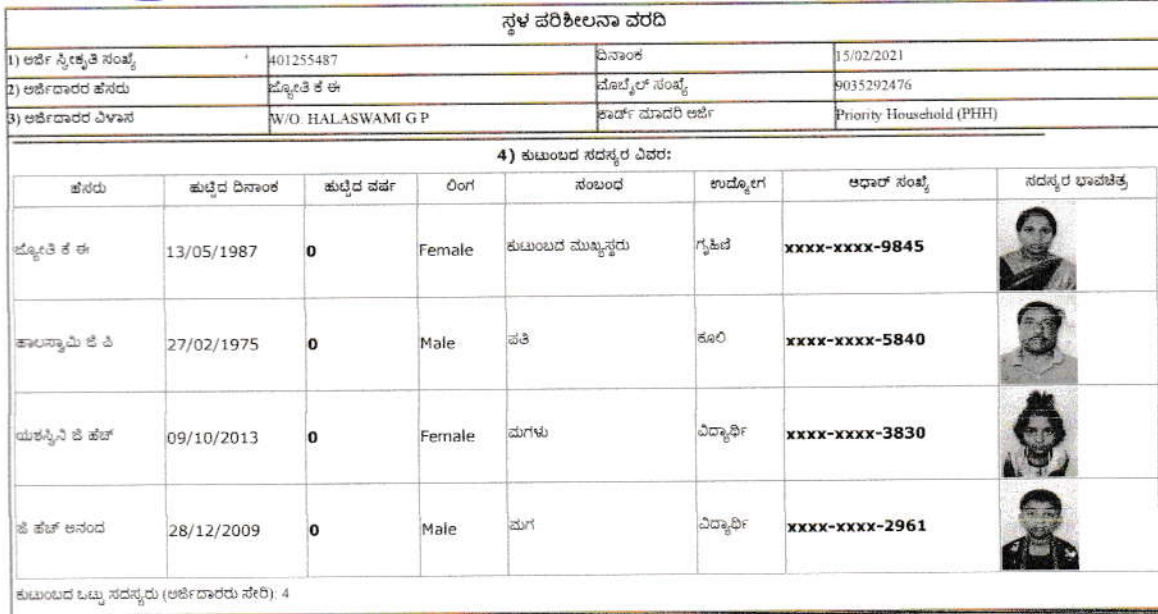 ಸ್ಥಳ ಪರಿಶೀಲನಾ ವರದಿ
1) ಅರ್ಜಿ ಸ್ವೀಕೃತಿ ಸಂಖ್ಯೆ 401255487 ದಿನಾಂಕ 15/02/2021
2) ಅರ್ಜಿದಾರರ ಹೆಸರು ಜ್ಯೋತಿ ಕೆ ಈ ಮೊಬೈಲ್ ಸಂಖ್ಯೆ 9035292476
3) ಅರ್ಜಿದಾರರ ವಿಳಾಸ W/O. HALASWAMI G P ಕಾರ್ಡ್ ಮಾದರಿ ಅರ್ಜಿ Priority Household (PHH)
4) ಕುಟುಂಬದ ಸದಸ್ಯರ ವಿವರ:
ಹೆಸರು ಹುಟ್ಟಿದ ದಿನಾಂಕ ಹುಟ್ಟಿದ ವರ್ಷ ಲಿಂಗ ಸಂಬಂಧ ಉದ್ಯೋಗ ಆಧಾರ್ ಸಂಖ್ಯೆ ಸದಸ್ಯರ ಭಾವಚಿತ್ರ
ಜ್ಯೋತಿ ಕೆ ಈ 13/05/1987 0 Female ಕುಟುಂಬದ ಮುಖ್ಯಸ್ಥರು ಗೃಹಿಣಿ xxxx-xxxx-9845
ಹಾಲಸ್ವಾಮಿ ಜಿ ಪಿ 27/02/1975 0 Male ಪತಿ ಕೂಲಿ xxxx-xxxx-5840
ಯಶಸ್ವಿನಿ ಜಿ ಹೆಚ್ 09/10/2013 0 Female ಮಗಳು ವಿದ್ಯಾರ್ಥಿ xxxx-xxxx-3830
ಜಿ ಹೆಚ್ ಆನಂದ 28/12/2009 0 Male ಮಗ ವಿದ್ಯಾರ್ಥಿ xxxx-xxxx-2961
ಕುಟುಂಬದ ಒಟ್ಟು ಸದಸ್ಯರು (ಅರ್ಜಿದಾರರು ಸೇರಿ): 4